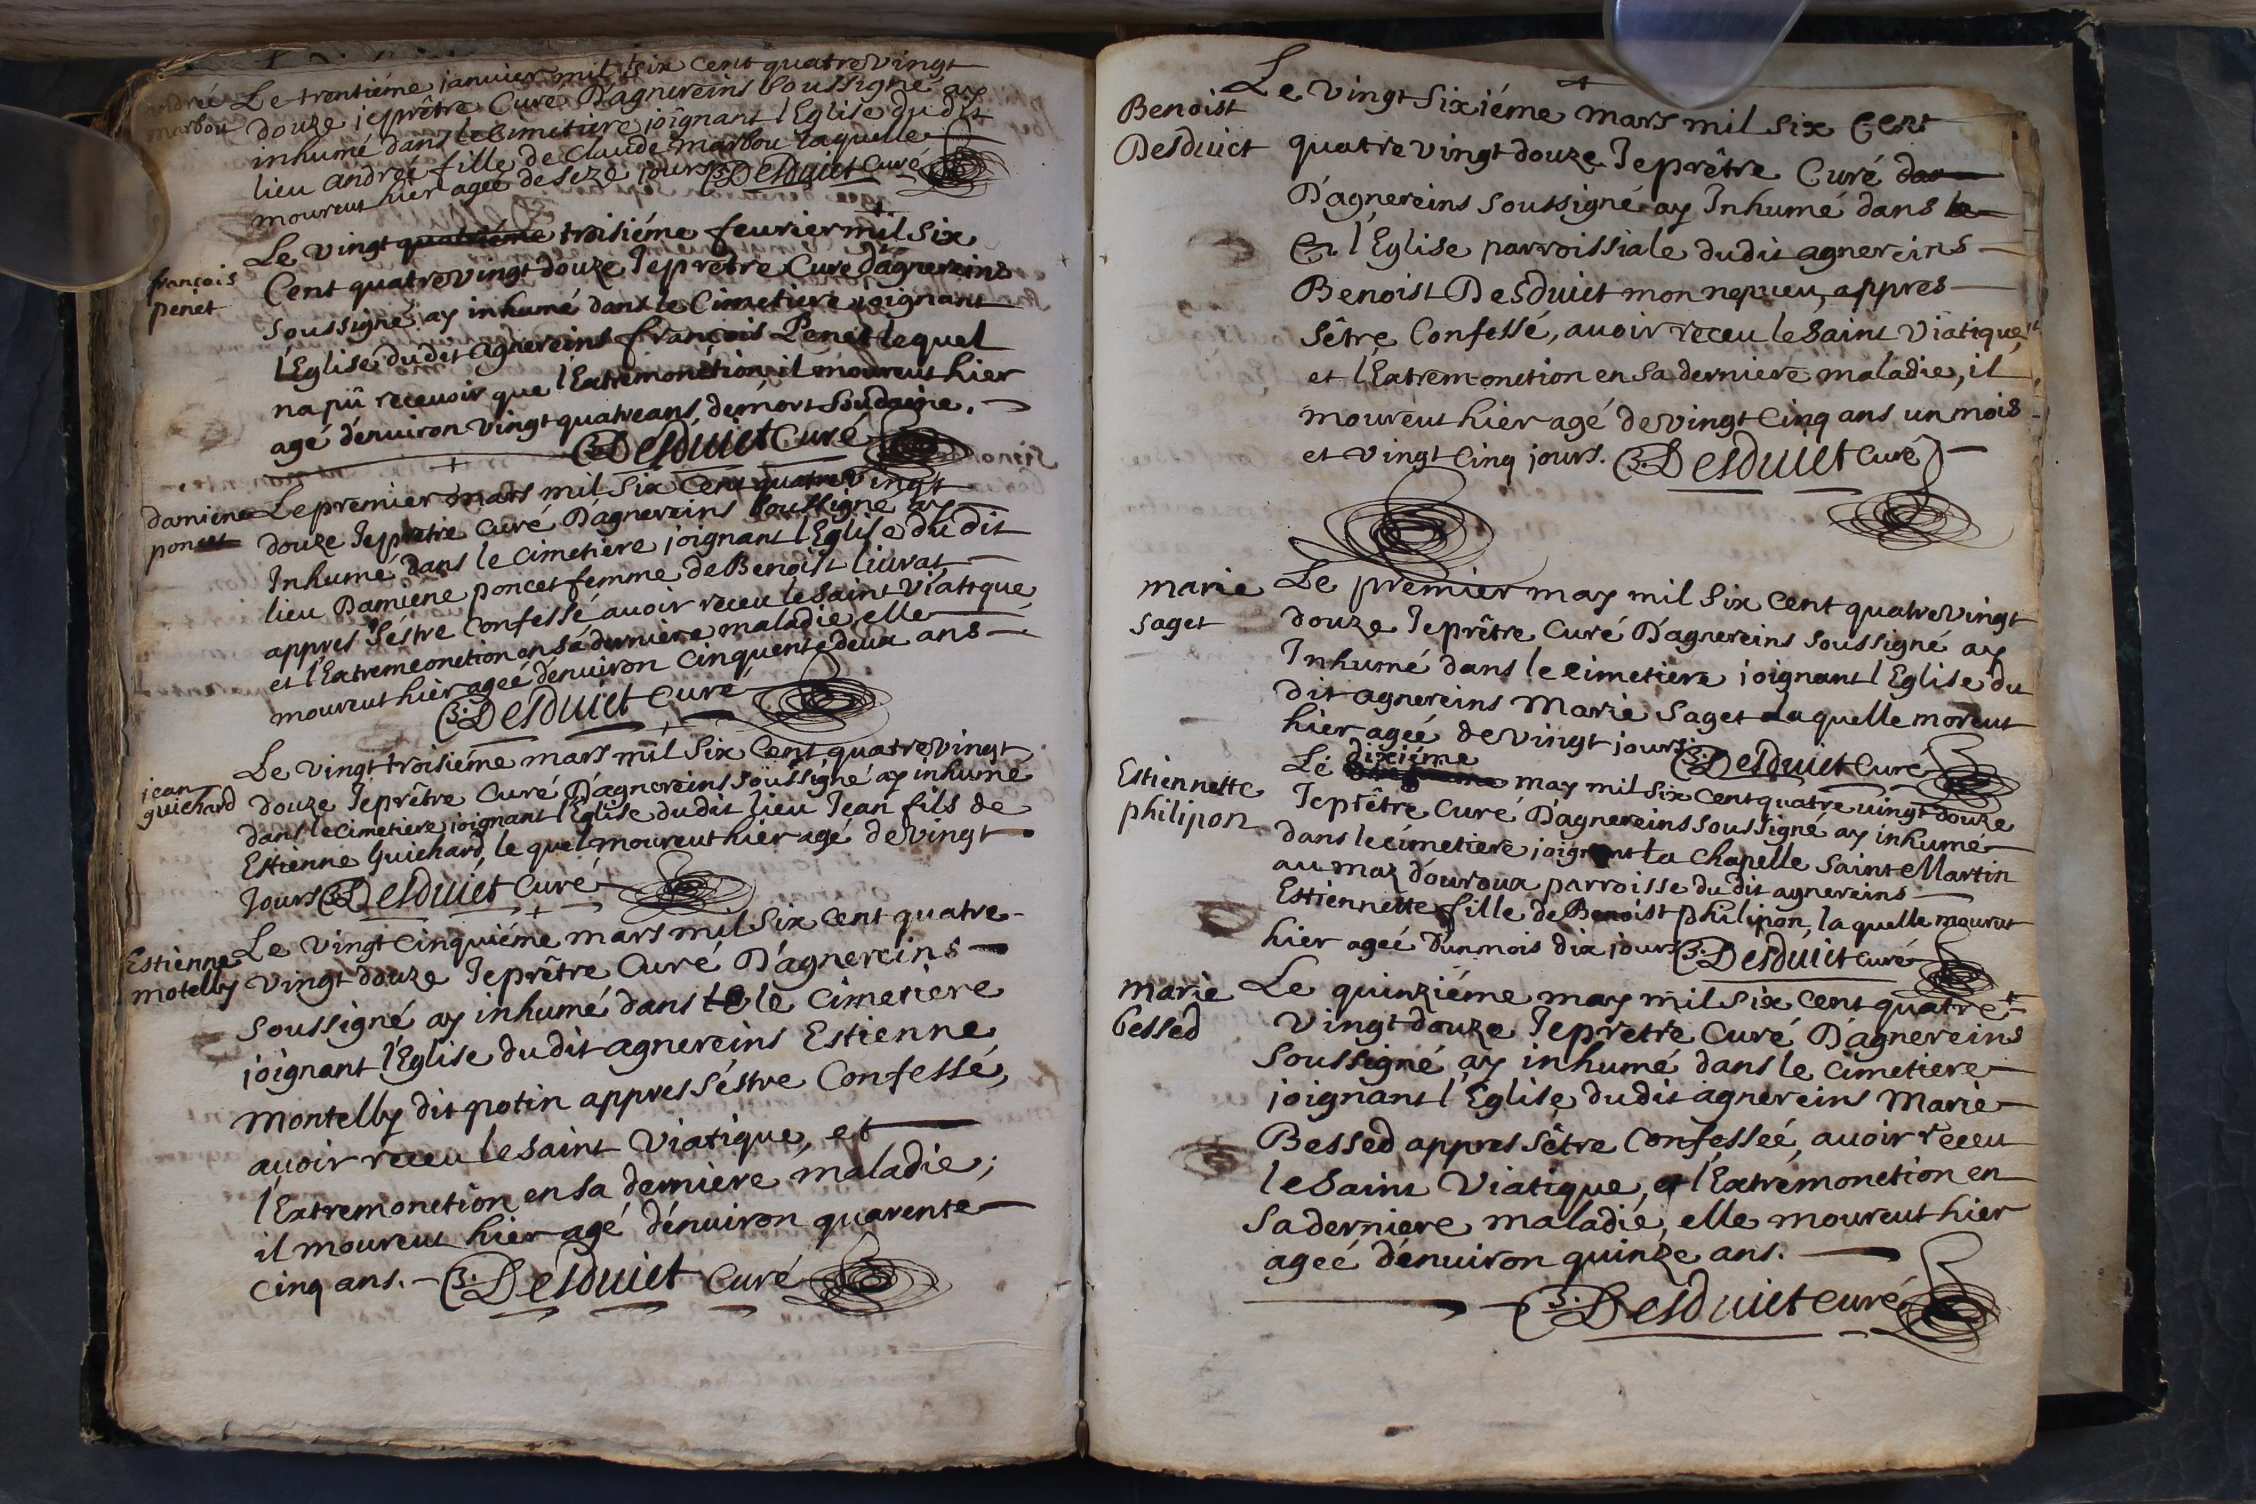 andrée
marbou
Le trentiéme ianuier mil six cent quatre vingt
douze ie prêtre Curé D'agnereins soussigné ay
inhumé dans le Cimetiere joignant l'Eglise du dit
lieu andreé fille de Claude marbou laquelle
mourut hier ageé de seze jours B. Desduict Curé
françois
penet
Le vingt quatriéme troisiéme feurier mil six
Cent quatre vingt douze Je prêtre Curé D'agnereins
soussigné ay inhumé dans le Cimetiere joignant
l'Eglise du dit agnereins françois Penet lequel
na pû receuoir que l'Extremonction il mourut hier
agé d'enuiron vingt quatre ans de mort soudaine.
B. Desduict Curé
damiene
poncet
Le premier mars mil six Cent quatre vingt
douze Je prêtre Curé D'agnereins soussigné ay
Inhumé dans le Cimetiere joignant l'Eglise du dit
lieu Damiene poncet femme de Benoist liurat
appres sêstre Confessé auoir receu le saint Viatique
et l'Extremeonction en sa derniere maladie, elle
mourut hier ageé d'enuiron Cinquente deux ans
B. Desduict Curé
jean
guichard
Le vingt troisiéme mars mil six Cent quatre vingt
douze Je prêtre Curé D'agnereins soussigné ay inhumé
dans le Cimetiere joignant l'Eglise du dit lieu Jean fils de
Estienne Guichard, le quel mourut hier agé de vingt
Jours B. Desduict Curé
Estienne
motelly
Le vingt Cinquiéme mars mil six cent quatre
vingt douze Je prêtre Curé D'agnereins
soussigné ay inhumé dans le le Cimetiere
joignant l'Eglise du dit agnereins Estienne
montelly dit potin appres sêstre Confessé,
auoir receu le saint Viatique, et
l'Extremonction en sa derniere maladie;
il mourut hier agé d'enuiron quarente
Cinq ans. B. Desduict Curé
Benoist
Desduict
Le vingt sixiéme mars mil six Cent
quatre vingt douze Je prêtre Curé dan
D'agnereins soussigné ay Inhumé dans le
En l'Eglise parroissiale du dit agnereins
Benoist Desduict mon nepueu, appres
sêtre Confessé, auoir receu le saint Viatique,
et l'Extremonction en sa derniere maladie, il
mourut hier agé de vingt Cinq ans un mois
et vingt Cinq jours. B. Desduict Curé
marie
saget
Le premier may mil six cent quatre vingt
douze Je prêtre Curé D'agnereins soussigné ay
Inhumé dans le cimetiere joignant l'Eglise du
dit agnereins Marie Saget laquelle morut
hier ageé de vingt jours. B. Desduict Curé
Estiennette
philipon
dixiéme
Le may mil six cent quatre vingt douze
Je prêtre Curé D'agnereins soussigné ay inhumé
dans le cimetiere joignant la Chapelle Saint Martin
au maz d'ouroux parroisse du dit agnereins
Estiennette fille de Benoist philipon, la quelle mourut
hier ageé D'un mois dix jours B. Desduict Curé
marie
bessed
Le quinziéme may mil six cent quatre
vingt douze Je prêtre Curé D'agnereins
soussigné ay inhumé dans le cimetiere
joignant l'Eglise du dit agnereins Marie
Bessed appres sêtre Confesseé, auoir receu
le saint Viatique, et l'Extremonction en
sa derniere maladie, elle mourut hier
ageé d'enuiron quinze ans.
B. Desduict Curé